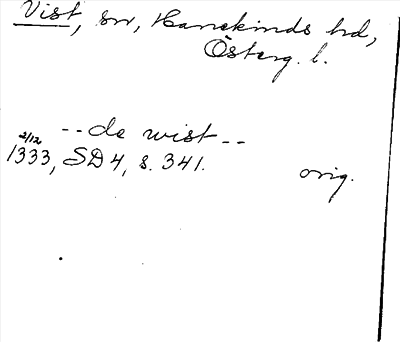 Vist, sn, Hanekinds hd,
Österg. l.
--de wist--
2/12
1333, SD 4, s. 341.
orig.